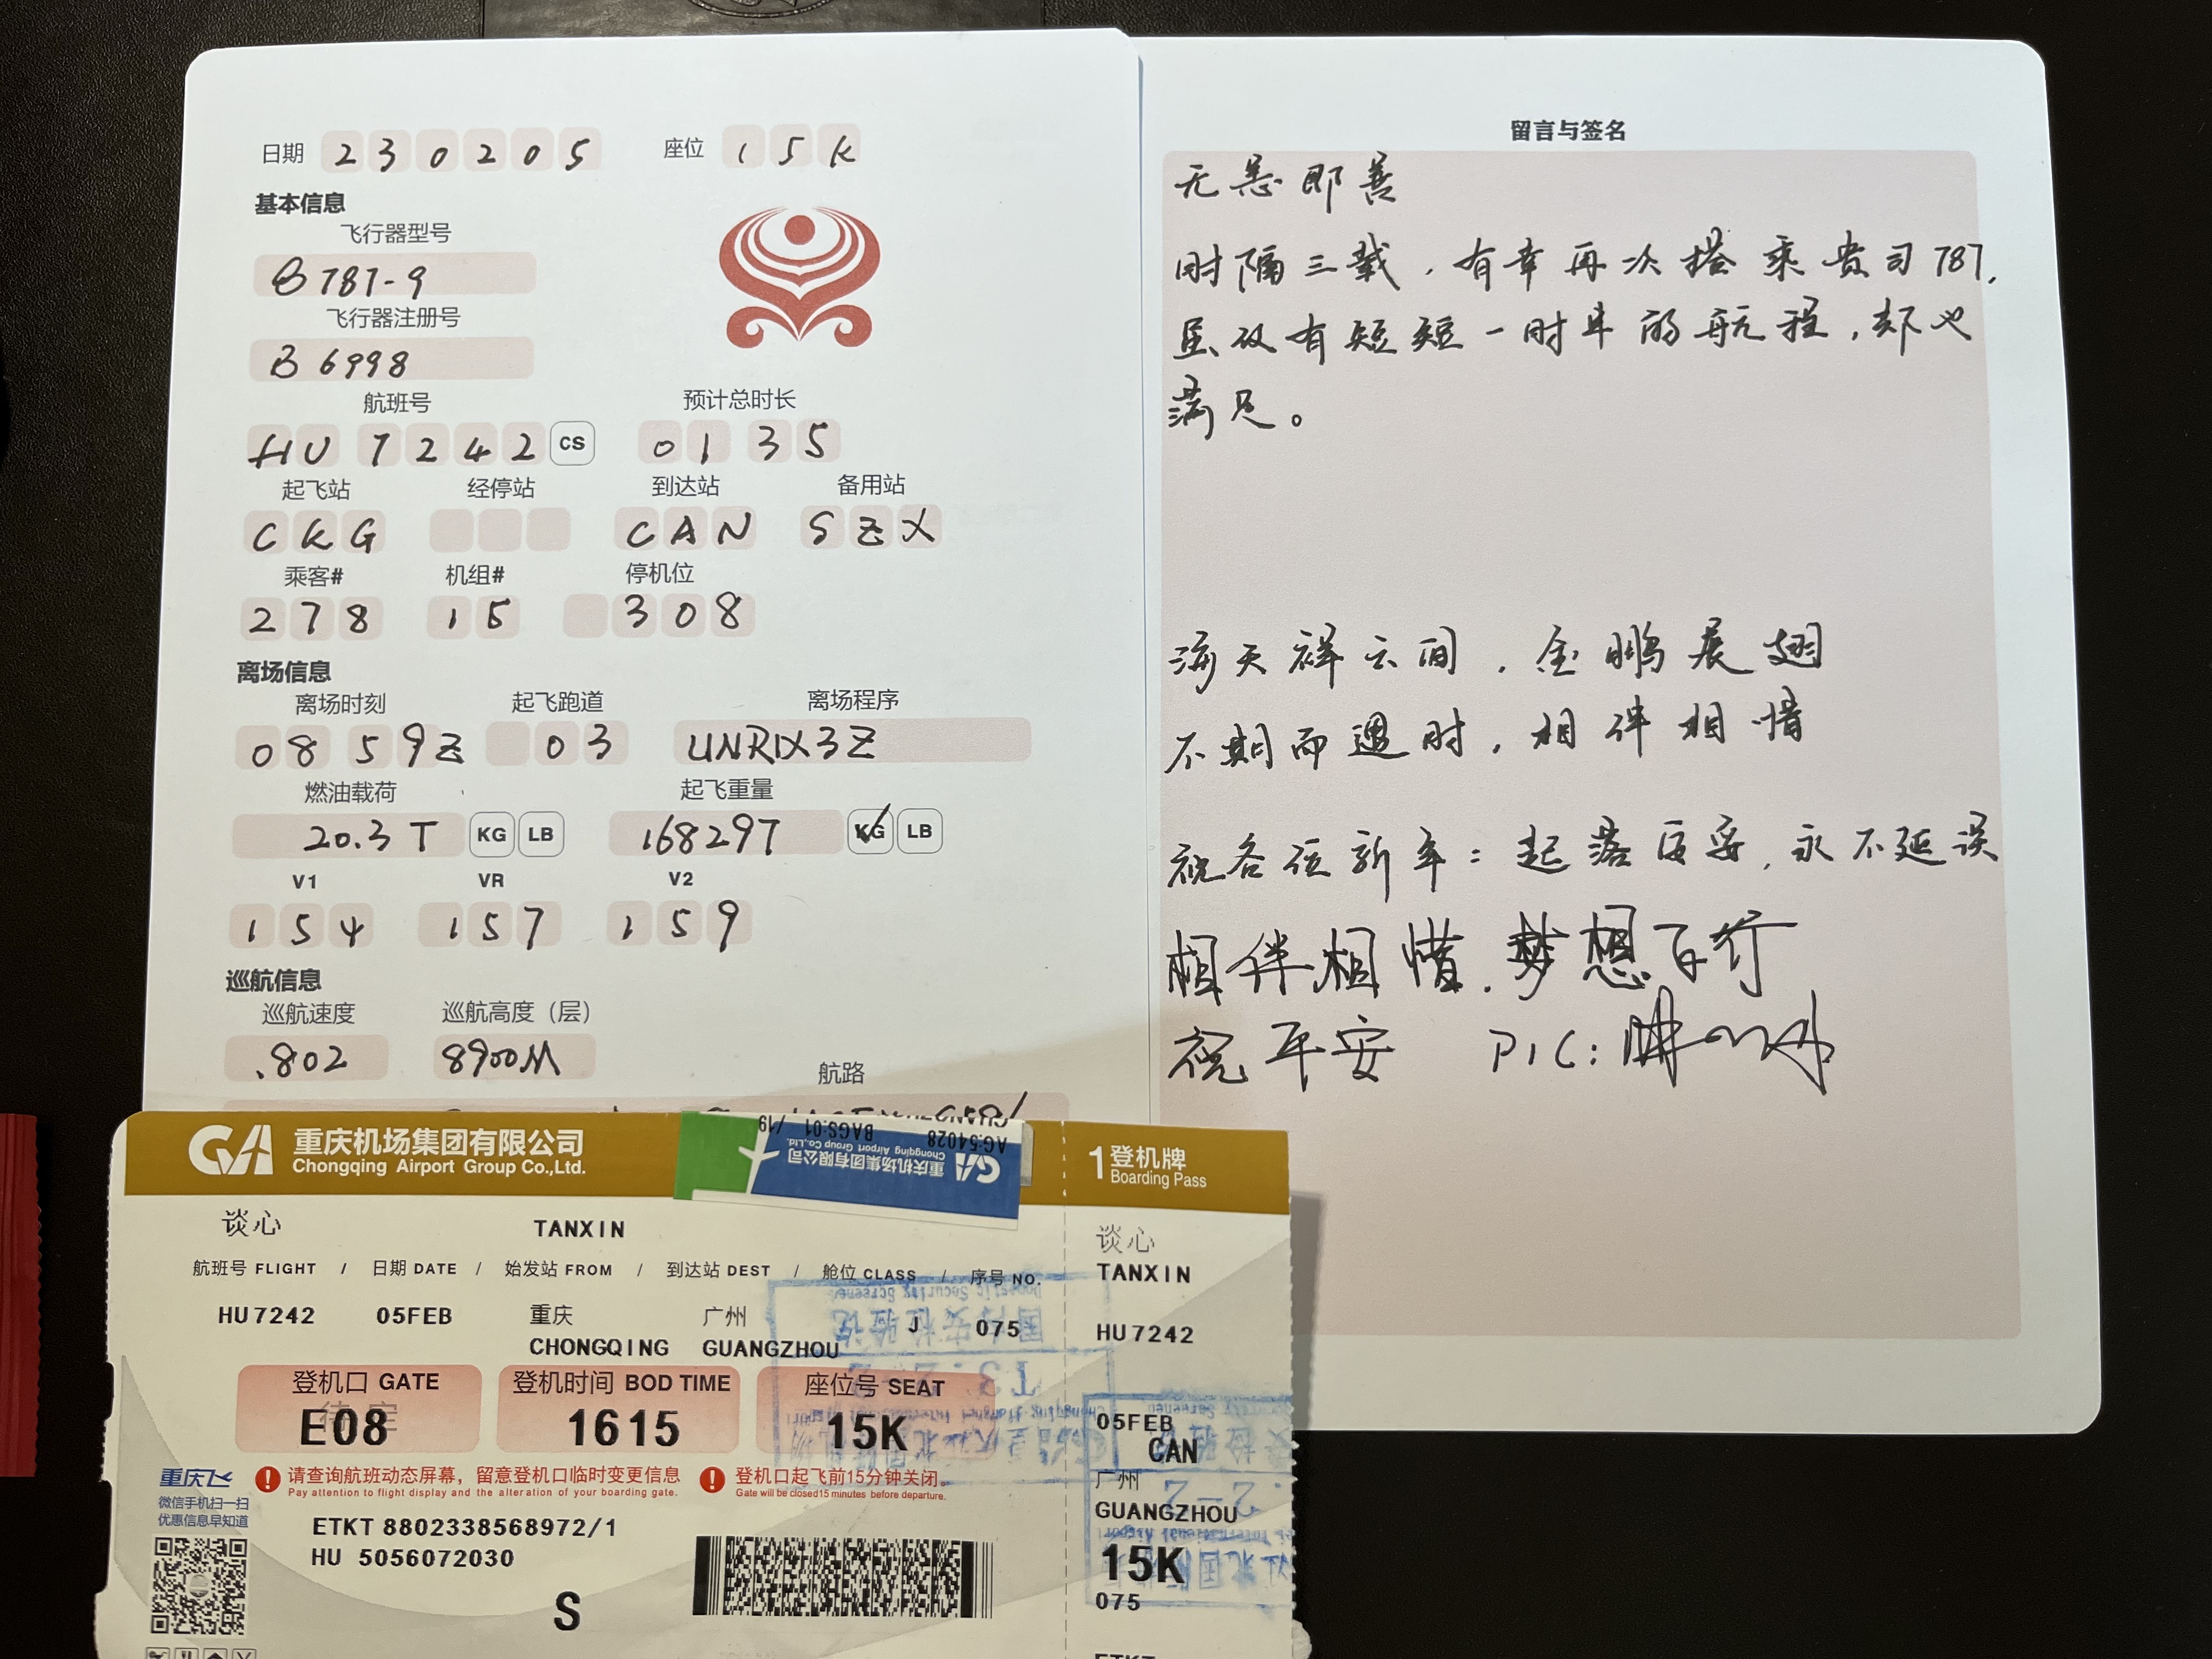 日期 230205 座位 15K
基本信息
飞行器型号
B787-9
飞行器注册号
B6998
航班号 预计总时长
HU 7242 CS 01 35
起飞站 经停站 到达站 备用站
CKG CAN SZX
乘客# 机组# 停机位
278 15 308
离场信息
离场时刻 起飞跑道 离场程序
08 59Z 03 UNRIX3Z
燃油载荷 起飞重量
20.3 T KG LB 168297 KG LB
V1 VR V2
154 157 159
巡航信息
巡航速度 巡航高度（层）
.802 8900M
航路
留言与签名
无恙即善
时隔三载，有幸再次搭乘贵司787,
虽仅有短短一时半的航程，却也
满足。
海天祥云间，金鹏展翅
不期而遇时，相伴相惜
祝各位新年：起落安妥，永不延误
相伴相惜.梦想百行
祝平安 PIC:
重庆机场集团有限公司
Chongqing Airport Group Co.,Ltd.
AG:54028 BAGS:01 /19
重庆机场集团有限公司
Chongqing Airport Group Co.,Ltd.
1 登机牌
Boarding Pass
谈心 TANXIN
航班号 FLIGHT / 日期 DATE / 始发站 FROM / 到达站 DEST / 舱位 CLASS / 序号 NO.
HU7242 05FEB 重庆 广州 J 075
CHONGQING GUANGZHOU
登机口 GATE 登机时间 BOD TIME 座位号 SEAT
待定
E08 1615 15K
重庆飞
微信手机扫一扫
优惠信息早知道
请查询航班动态屏幕，留意登机口临时变更信息
Pay attention to flight display and the alteration of your boarding gate.
登机口起飞前15分钟关闭。
Gate will be closed15 minutes before departure.
ETKT 8802338568972/1
HU 5056072030
S
谈心
TANXIN
HU7242
05FEB
CAN
广州
GUANGZHOU
15K
075
ETKT